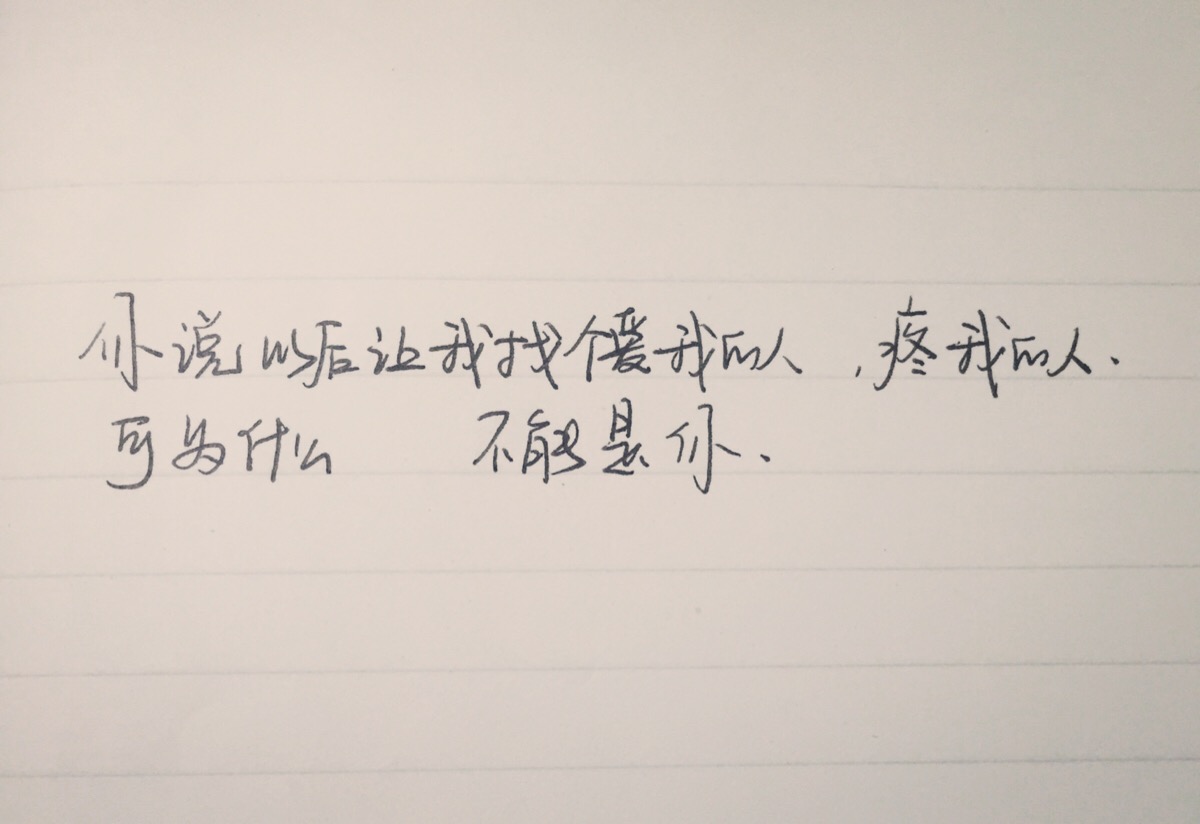 你说以后让我找个爱我的人,疼我的人.
可为什么 不能是你.